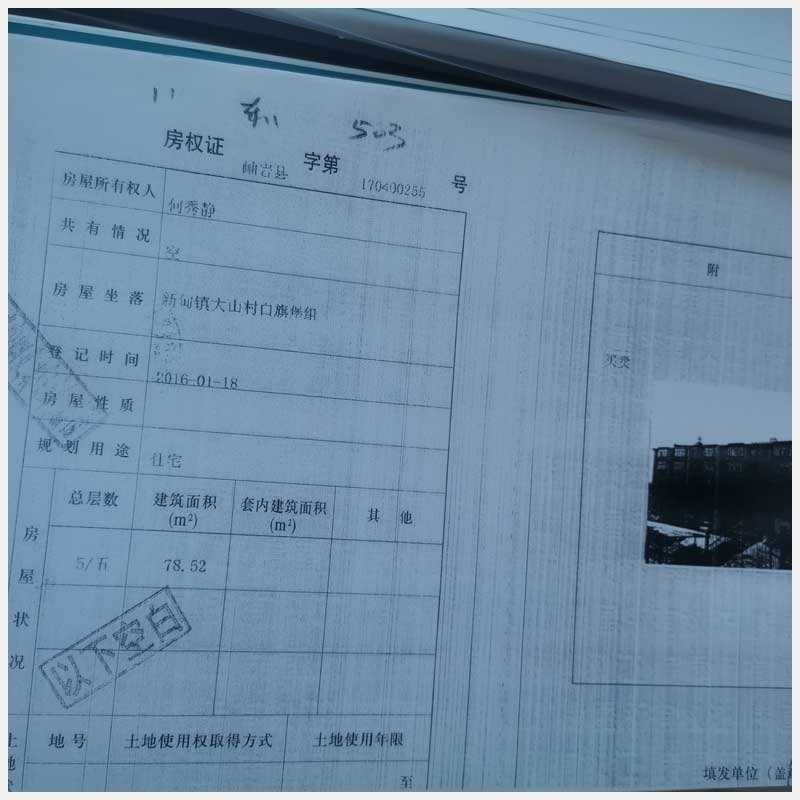 503
房权证 岫岩县 字第 170400255 号
房屋所有权人 何秀静
共有情况 空
房屋坐落 新甸镇大山村白旗堡组
登记时间 2016-01-18
房屋性质
规划用途 住宅
房屋状况
总层数 建筑面积(m²) 套内建筑面积(m²) 其他
5/五 78.52
以下空白
土地
地号 土地使用权取得方式 土地使用年限
至
附
买卖
填发单位(盖